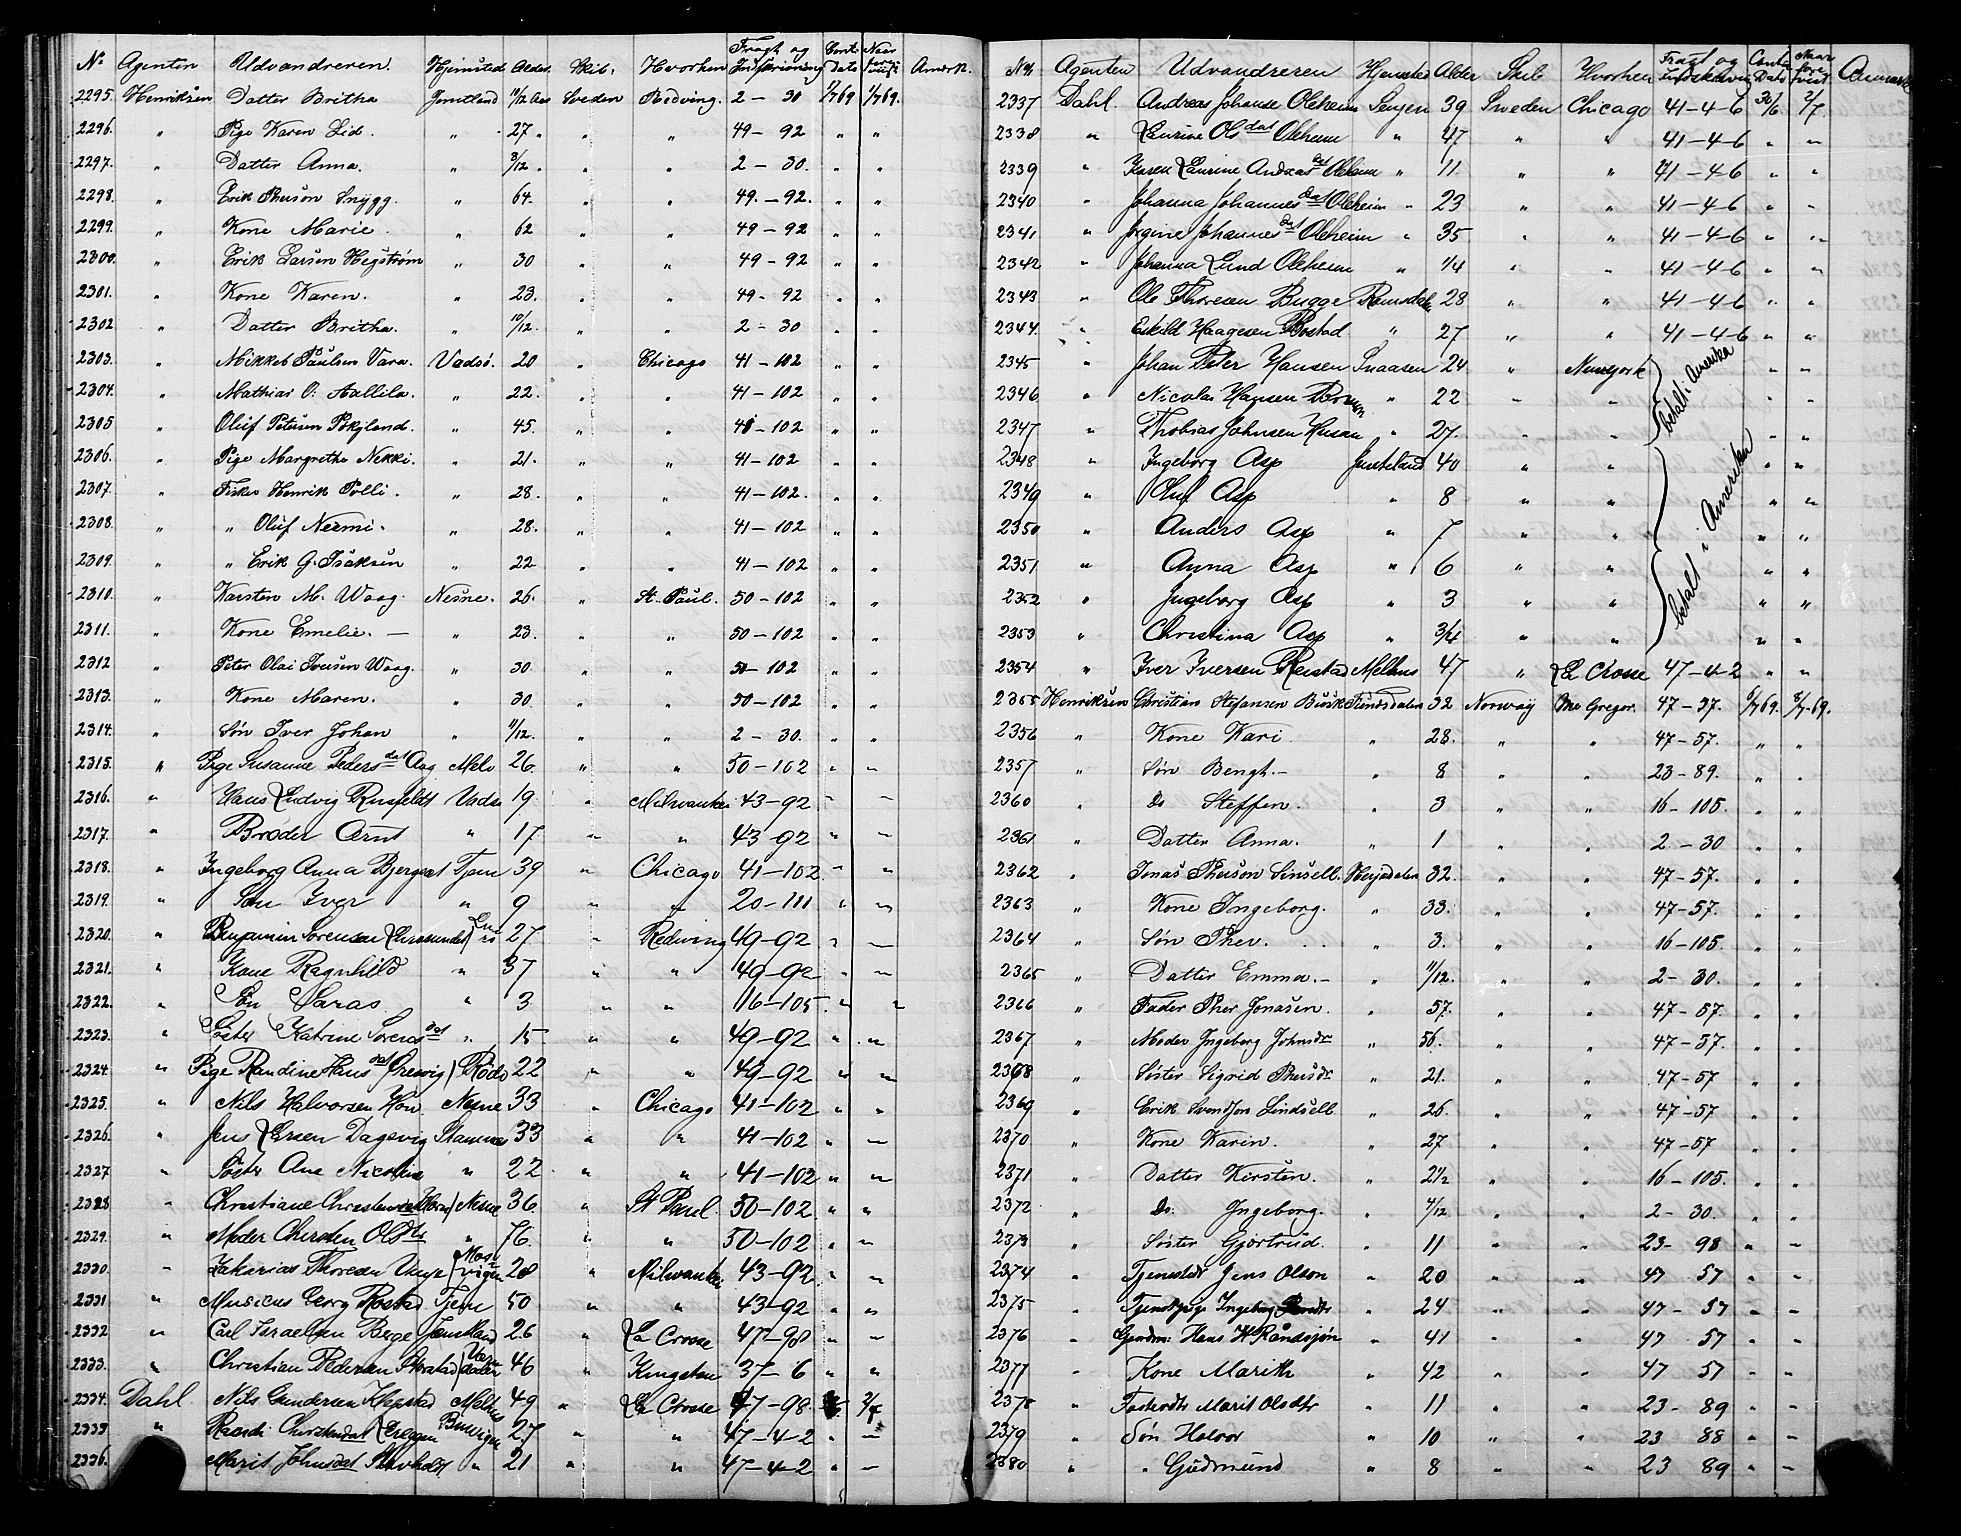 No Agenten Udvandreren. Hjemsted Alder. Skib. Hvorhen Fragt og Indskrivning Cont. Dato Naar forevist Anmerk.
2295. Henriksen Datter Britha Jemtland 11/12 Aar Sveden Redving. 2 - 30 1/7 69 1/7 69.
2296. " Pige Karen Lid. " 27 " " " 49 - 92 " "
2297. " Datter Anna. " 3/12 " " " 2 - 30. " "
2298. " Erik Phersön Snygg. " 64. " " 49. - 92. " "
2299. " Kone Marie. " 62 " " 49 - 92 " "
2300. " Erik Larsen Hegström " 30 " " 49 - 92 " "
2301. " Kone Karen. " 23. " " 49 - 92 " "
2302 " Datter Britha. " 10/12. " " 2 - 30 " "
2303. " Mikkel Paulsen Vara. Vadsö. 20 " Chicago 41 - 102 " "
2304. " Mathias O. Aallila. " 22. " " 41 - 102 " "
2305 " Oluf Petersen " 45. " " 41 - 102 " "
2306. " Pige Margrethe Nekki. " 21. " " 41 - 102 " "
2307. " Fisker Henrik Polli. " 28. " " 41 - 102. " "
2308. " " Oluf Neemi. " 28. " " 41 - 102 " "
2309. " " Erik G. Isaksen " 22 " " 41 - 102 " "
2310. " Karsten M. Waag. Nesne. 26. " St. Paul. 50 - 102 " "
2311. " Kone Emelie. — " 23. " " 50 - 102 " "
2312 " Peter Olai Iversen Waag. " 30. " " 50 - 102 " "
2313. " Kone Maren. " 30. " " 50 - 102 " "
2314. " Sön Iver Johan " 11/12. " " 2 - 30. " "
2315. " Pige Susanne Pedersdat Aag Melö 26. " " 50 - 102 " "
2316. " Hans Ludvig Rusfeldt Vadsö 19 " Milwaukee 43 - 92 " "
2317. " Broder Arnt " 17 " " 43 - 92 " "
2318. " Ingeborg Anna Bjerget Tjem 39 " Chicago 41 - 102 " "
2319. " Søn Iver " 9 " " 20 - 111 " "
2320. " Benjamin Sorensen 27 " Redwing 49 - 92 " "
2321. " Kone Ragnhild " 37 " " 49 - 92 " "
2322. " Søn " 3 " " 16 - 105 " "
2323. " Søster Katrine Sorensdat " 15 " " 49 - 92 " "
2324. " Pige Randine Hansdat Rödö 22 " " 49 - 92 " "
2325. " Nils Halvorsen Nesne 33 " Chicago 41 - 102 " "
2326. " Jens Larsen Dagsvig Stamnes 33 " " 41 - 102 " "
2327 " Søster Ane Nicoline " 22 " " 41 - 102 " "
2328 " Christiane Christensdat Nesne 36 " St Paul. 50 - 102 " "
2329. " Moder Chersten Olsdtr " 76. " " 50 - 102 " "
2330. " Zakarias Thoresen Mosvigen 28 " Milwaukee 43 - 92 " "
2331 " Musicus Georg Rostad Tjem 50 " " 43 - 92 " "
2332. " Carl Israelsen Berge Jemtland 26 " La Crosse 47 - 98 " "
2333. " Christian Pedersen Værdalen 46 " Kingston 37 - 6 " "
2334. Dahl Nils Gundersen Melhus 49 " La Crosse 47 - 98 2/7
2335. " Buvigen 27 " " 47 - 4 - 2 " "
2336. " Marit Johnsdat " 21 " " 47 - 4 - 2 " "
No Agenten Udvandreren Hjemsted Alder Skib Hvorhen Fragt og Indskrivning Contr. Dato Naar forevist Anmærk
2337 Dahl. Andreas Johanse Oleheim Senjen 39 Sweden Chicago 41 - 4 - 6 30/6 2/7.
2338 " Laurine Olsdat Oleheim " 47 " " 41 - 4 - 6 " "
2339 " Karen Laurine Andreasdat Oleheim " 11. " " 41 - 4 - 6 " "
2340 " Johanna Johannesdat Oleheim " 23 " " 41 - 4 - 6 " "
2341 " Jørgine Johannesdat Oleheim " 35 " " 41 - 4 - 6 " "
2342 " Johanna Lund Oleheim " 14 " " 41 - 4 - 6 " "
2343 " Ole Thoresen Bugge Romsdalen 28 " " 41 - 4 - 6 " "
2344. " Eskild Haagesen Bostad " 27 " " 41 - 4 - 6 " "
2345 " Johan Peter Hansen Snaasen 24 " Newyork betalt i Amerika " "
2346 " Nicolas Hansen " 22 " " " "
2347 " Thobias Johnsen " 27. " " " "
2348 " Ingeborg Asp Jemteland 40 " " betalt i Amerika " "
2349 " Oluf Asp " 8 " " " "
2350 " Anders Asp " 7 " " " "
2351 " Anna Asp " 6 " " " "
2352 " Ingeborg Asp " 3 " " " "
2353 " Christina Asp " 3/4 " " " "
2354 " Iver Iversen Melhus 47 " La Crosse 47 - 4 - 2 " "
2355 Henriksen Christian Stefansen 32 Norway Mc Gregor. 47 - 57. 6/7 69. 8/7 69.
2356 " Kone Kari " 28. " " 47 - 57. " "
2357 " Sön Bengt. - " 8 " " 23 - 89. " "
2360 " Do Steffen. " 3 " " 16 - 105. " "
2361 " Datter Anna. " 1 " " 2 - 30 " "
2362 " Jonas Pherson Herjedalen 32. " " 47 - 57. " "
2363 " Kone Ingeborg. " 33. " " 47 - 57. " "
2364 " Sön Pher. " 3. " " 16 - 105. " "
2365 " Datter Emma. - " 11/12. " " 2 - 30. " "
2366 " Fader Pher Jonasen. " 57. " " 47 - 57. " "
2367 " Moder Ingeborg Johnsdr " 56. " " 47 - 57. " "
2368 " Söster Sigrid Phersdr " 21. " " 47 - 57 " "
2369 " Erik Svendsen Lindsell. " 26. " " 47 - 57 " "
2370 " Kone Karin. " 27 " " 47 - 57 " "
2371 " Datter Kirsten. " 2 1/2 " " 16 - 105. " "
2372 " Do. Ingeborg. " 4/12 " " 2 - 30. " "
2373 " Söster Gjertrud. " 11 " " 23 - 98 " "
2374 " Jens Olson " 20 " " 47 57 " "
2375 " Tjenstpige Ingeborg " 24 " " 47 - 57 " "
2376 " Gaardm. Hans H Råndsjön " 41 " " 47 57 " "
2377 " Kone Marith " 42 " " 47 57 " "
2378 " Marit Olsdtr " 11 " " 23 - 89 " "
2379 " Sön Halvor " 10 " " 23 88 " "
2380 " " Gudmund " 8 " " 23 89 " "